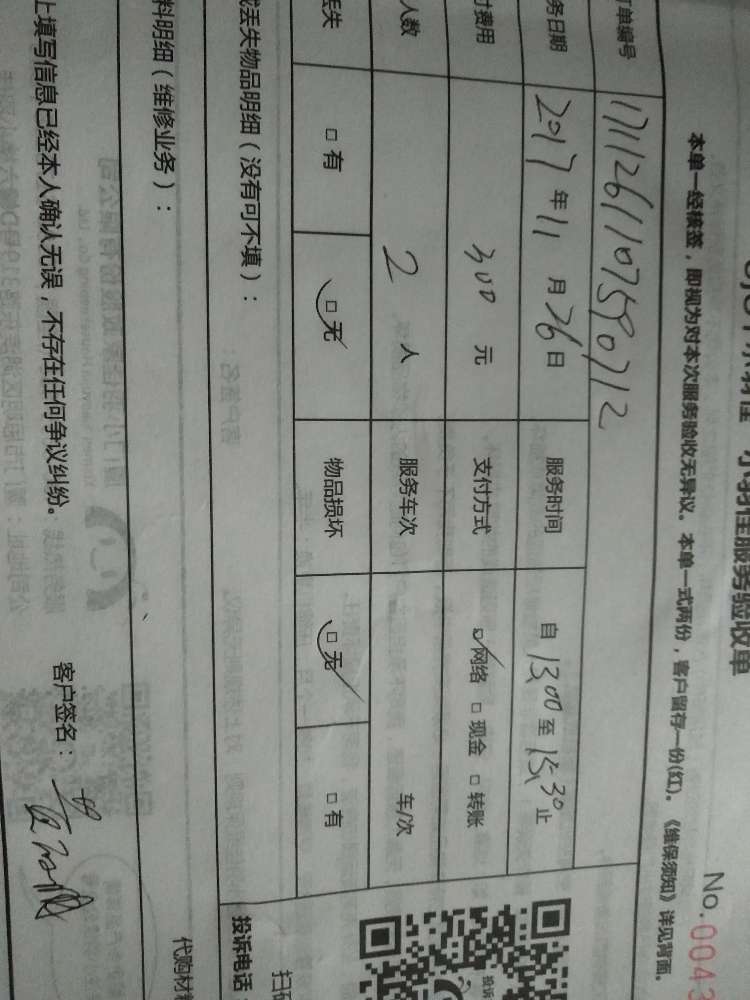 小羽佳服务验收单
No.0043
本单一经核签，即视为对本次服务验收无异议。本单一式两份，客户留存一份(红)。《维保须知》详见背面。
订单编号 17112611075590712
务日期 2017年11月26日 服务时间 自13:00至15:30止
付费用 300元 支付方式 ☑网络 □现金 □转账
人数 2人 服务车次 车/次
丢失 □有 ☑无 物品损坏 ☑无 □有
或丢失物品明细（没有可不填）：
投诉电话：
料明细（维修业务）：
上填写信息已经本人确认无误，不存在任何争议纠纷。
客户签名：
投诉
扫码
代购材料